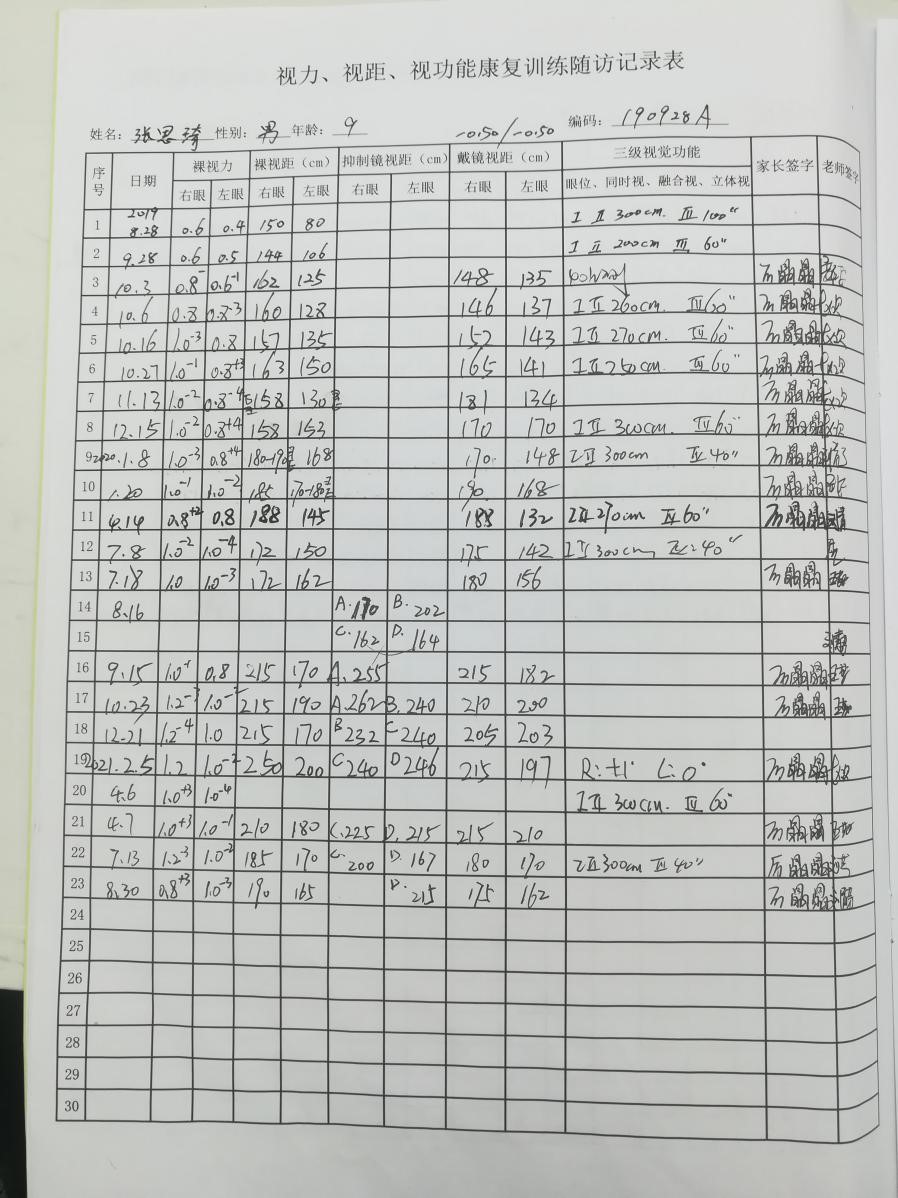 视力、视距、视功能康复训练随访记录表
姓名：张思琦 性别：男 年龄：9 -0.50/-0.50 编码：190928A
序号 日期 裸视力 裸视距（cm） 抑制镜视距（cm） 戴镜视距（cm） 三级视觉功能 家长签字 老师签字
右眼 左眼 右眼 左眼 右眼 左眼 右眼 左眼 眼位、同时视、融合视、立体视
1 2019 8.28 0.6 0.4 150 80 I II 300cm. III 100"
2 9.28 0.6 0.5 144 106 I II 200cm III 60"
3 10.3 0.8⁻ 0.6⁻¹ 162 125 148 135
4 10.6 0.8 0.8⁻³ 160 128 146 137 I II 260cm. III 60"
5 10.16 1.0⁻³ 0.8 157 135 152 143 I II 270cm. III 60"
6 10.27 1.0⁻¹ 0.8⁺³ 163 150 165 141 I II 250cm. III 60"
7 11.13 1.0⁻² 0.8⁻⁴ 158 130 181 134
8 12.15 1.0⁻² 0.8⁺⁴ 158 153 170 170 I II 300cm. III 60"
9 2020.1.8 1.0⁻³ 0.8⁺⁴ 180-190 168 170 148 I II 300cm III 40"
10 1.20 1.0⁻¹ 1.0⁻² 185 170-180 190 168
11 4.14 0.8⁺² 0.8 188 145 188 132 I II 270cm III 60"
12 7.8 1.0⁻² 1.0⁻⁴ 172 150 175 142 I II 300cm, III 40"
13 7.18 1.0 1.0⁻³ 172 162 180 156
14 8.16 A.170 B.202
15 C.162 D.164
16 9.15 1.0⁻¹ 0.8 215 170 A.255 215 182
17 10.23 1.2⁻³ 1.0⁻² 215 190 A.262 B.240 210 200
18 12.21 1.2⁻⁴ 1.0 215 170 B 232 C 240 205 203
19 2021.2.5 1.2 1.0⁻² 250 200 C 240 D 246 215 197 R:+1° L:0°
20 4.6 1.0⁺³ 1.0⁻⁴ I II 300cm. III 60"
21 4.7 1.0⁺³ 1.0⁻¹ 210 180 C.225 D.215 215 210
22 7.13 1.2⁻³ 1.0⁻² 185 170 C.200 D.167 180 170 I II 300cm III 40"
23 8.30 0.8⁺³ 1.0⁻³ 190 165 D.215 175 162
24
25
26
27
28
29
30